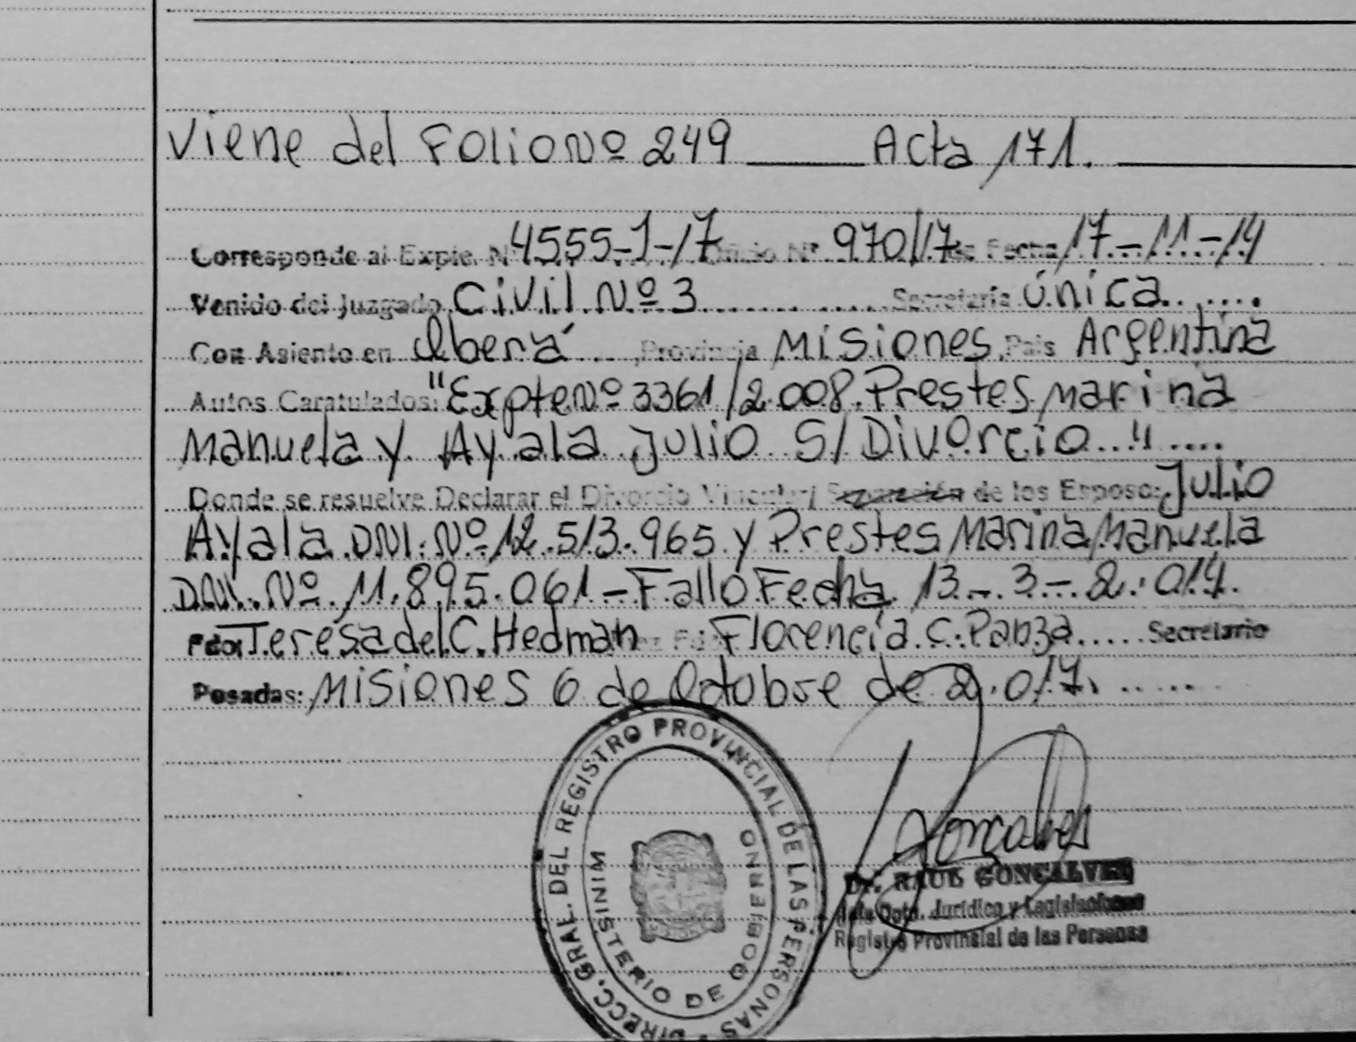 Viene del Folio Nº 249 ____ Acta 171.
Corresponde al Expte. Nº 4555-1-17 Oficio Nº 970/17 de Fecha 17-11-14
Venido del Juzgado Civil Nº 3 Secretaría única
Con Asiento en Oberá, Provincia Misiones País Argentina
Autos Caratulados: "Expte Nº 3361/2.008. Prestes Marina
Manuela y Ayala Julio S/ Divorcio.."
Donde se resuelve Declarar el Divorcio Vincular/ Separación de los Esposo: Julio
Ayala DNI. Nº 12.513.965 y Prestes Marina Manuela
DNI. Nº 11.895.061 - Fallo Fecha 13 - 3 - 2.014.
Fdo: Teresa del C. Hedman Florencia C. Panza Secretario
Posadas: Misiones 6 de Octubre de 2.017.
DIRECC. GRAL. DEL REGISTRO PROVINCIAL DE LAS PERSONAS
MINISTERIO DE GOBIERNO
Goncalves
Dr. RAUL GONCALVES
Jefe Dpto. Jurídico y Legislacional
Registro Provincial de las Personas